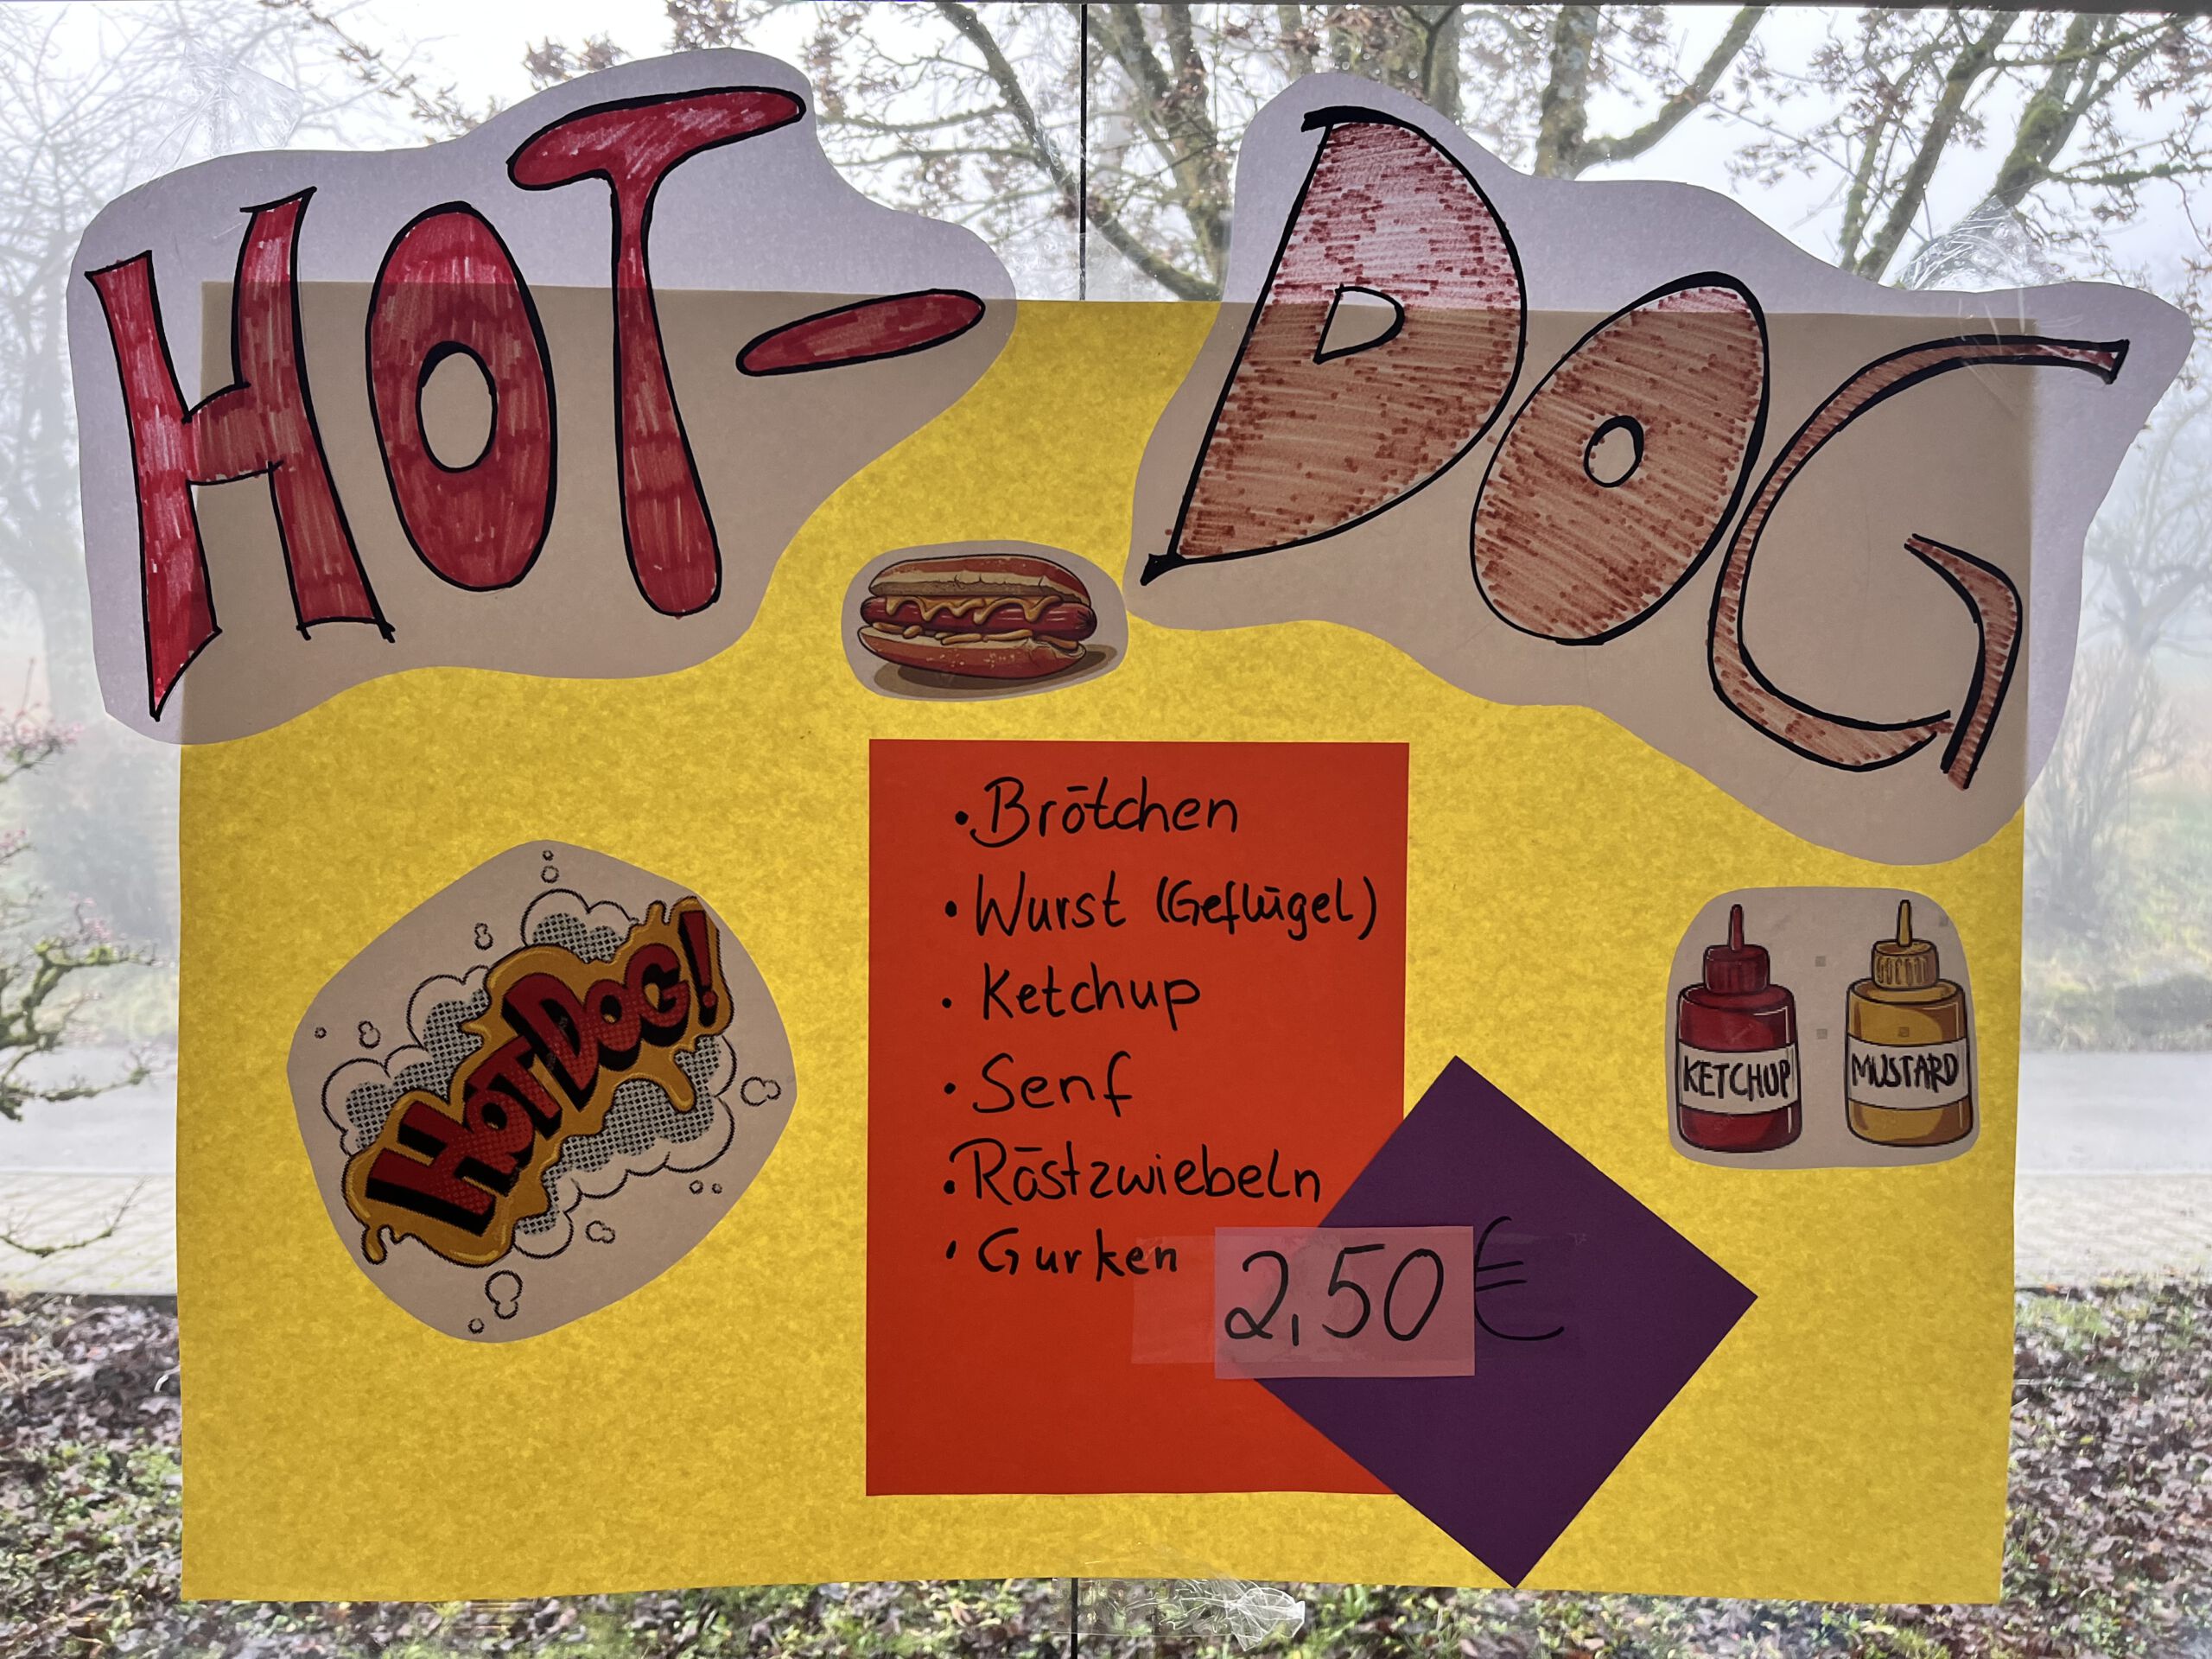 HOT-
DOG
• Brötchen
• Wurst (Geflügel)
• Ketchup
• Senf
• Röstzwiebeln
• Gurken
2,50 €
HOT DOG!
KETCHUP
MUSTARD